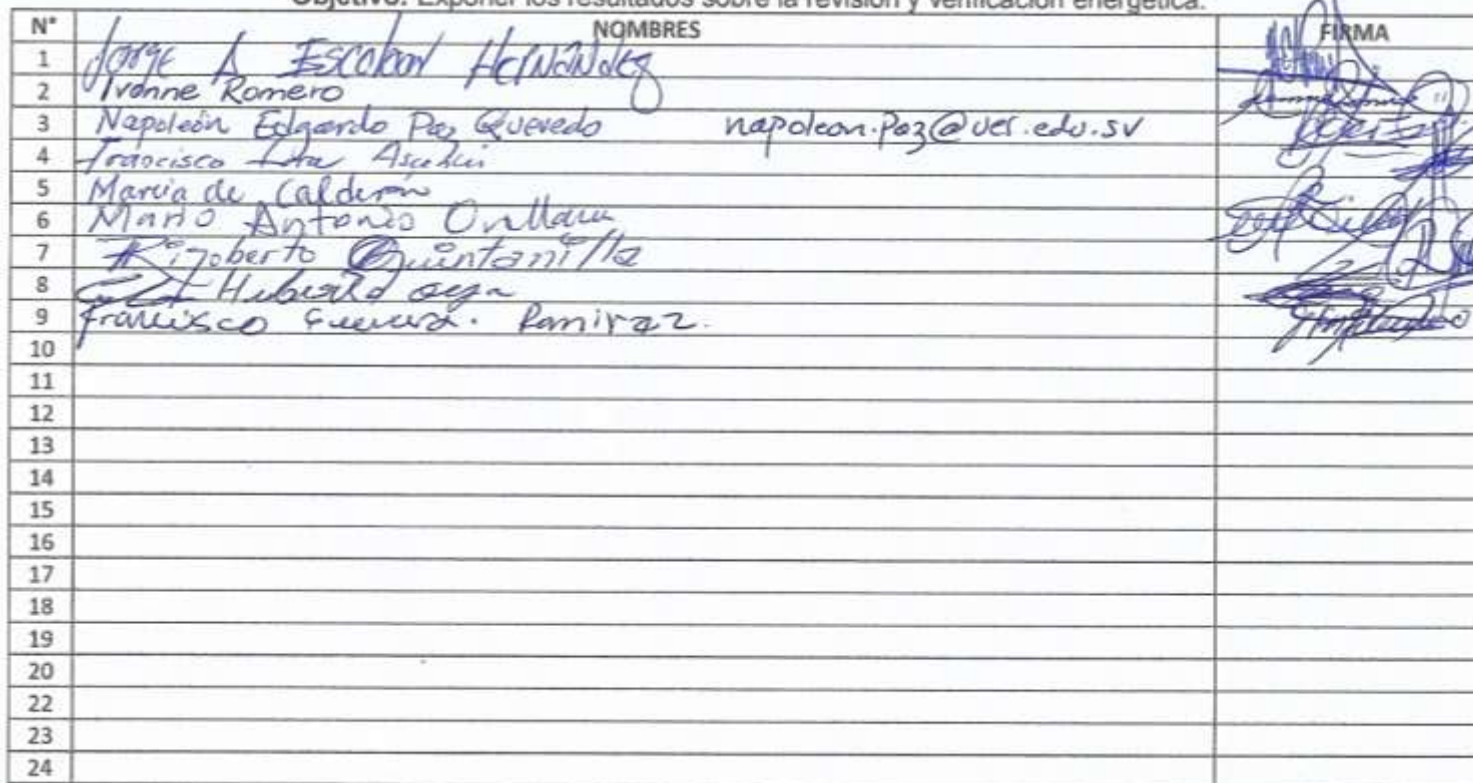 Objetivo: Exponer los resultados sobre la revisión y verificación energética.
N° NOMBRES FIRMA
1 Jorge A Escobar Hernández
2 Ivonne Romero
3 Napoleón Edgardo Paz Quevedo napoleon.paz@ues.edu.sv
4 Francisco
5 Marcia de Calderón
6 Mario Antonio Orellana
7 Rigoberto Quintanilla
8
9 Francisco Ramirez.
10
11
12
13
14
15
16
17
18
19
20
22
23
24